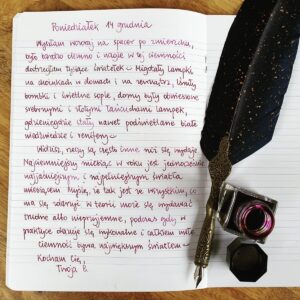 Poniedziałek 14 grudnia
Wyszłam wczoraj na spacer po zmierzchu,
było bardzo ciemno i nagle w tej ciemności
dostrzegłam tysiące światełek – Migotały lampki
na choinkach w domach i na zewnątrz,
bombki i świetlne sople, domy były obwieszone
srebrnymi i złotymi łańcuchami lampek,
gdzieniegdzie stały nawet podświetlane białe
niedźwiedzie i renifery –
Widzisz, rzeczy są często inne niż się wydaje
Najciemniejszy miesiąc w roku jest jednocześnie
najjaśniejszym, i najpełniejszym światła
miesiącem. Myślę, że tak jest ze wszystkim, co
ma się wydarzyć. W teorii może się wydawać
trudne albo nieprzyjemne, podczas gdy w
praktyce okazuje się wykonalne i całkiem miłe
ciemność bywa największym światłem –
Kocham Cię,
Twoja